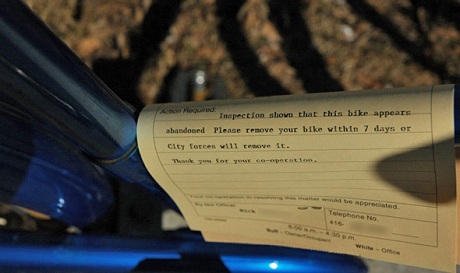 Action Required:
Inspection shown that this bike appears
abandoned Please remove your bike within 7 days or
City forces will remove it.
Thank you for your co-operation.
Your co-operation in resolving this matter would be appreciated.
By-law Officer
Rick
Telephone No.
416-
8:00 a.m. – 4:30 p.m.
Buff – Owner/Occupant White – Office